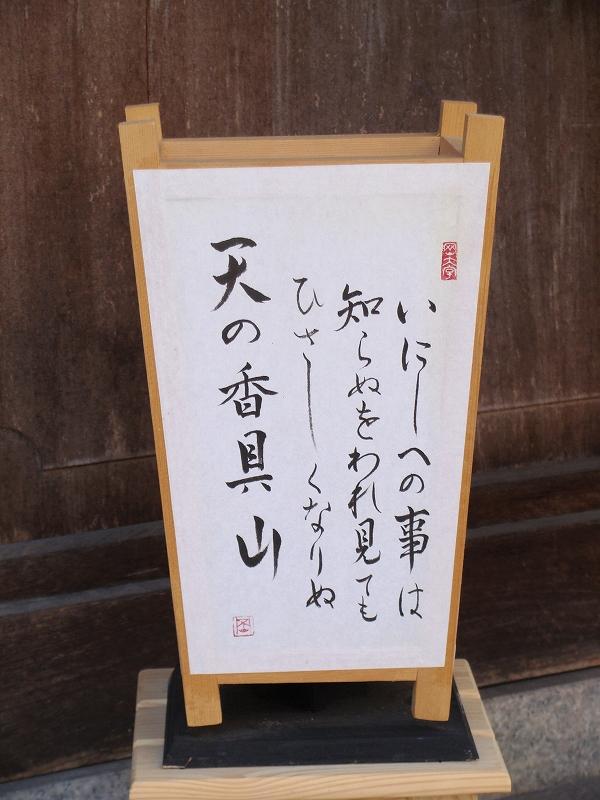 いにしへの事は
知らぬをわれ見ても
ひさしくなりぬ
天の香具山